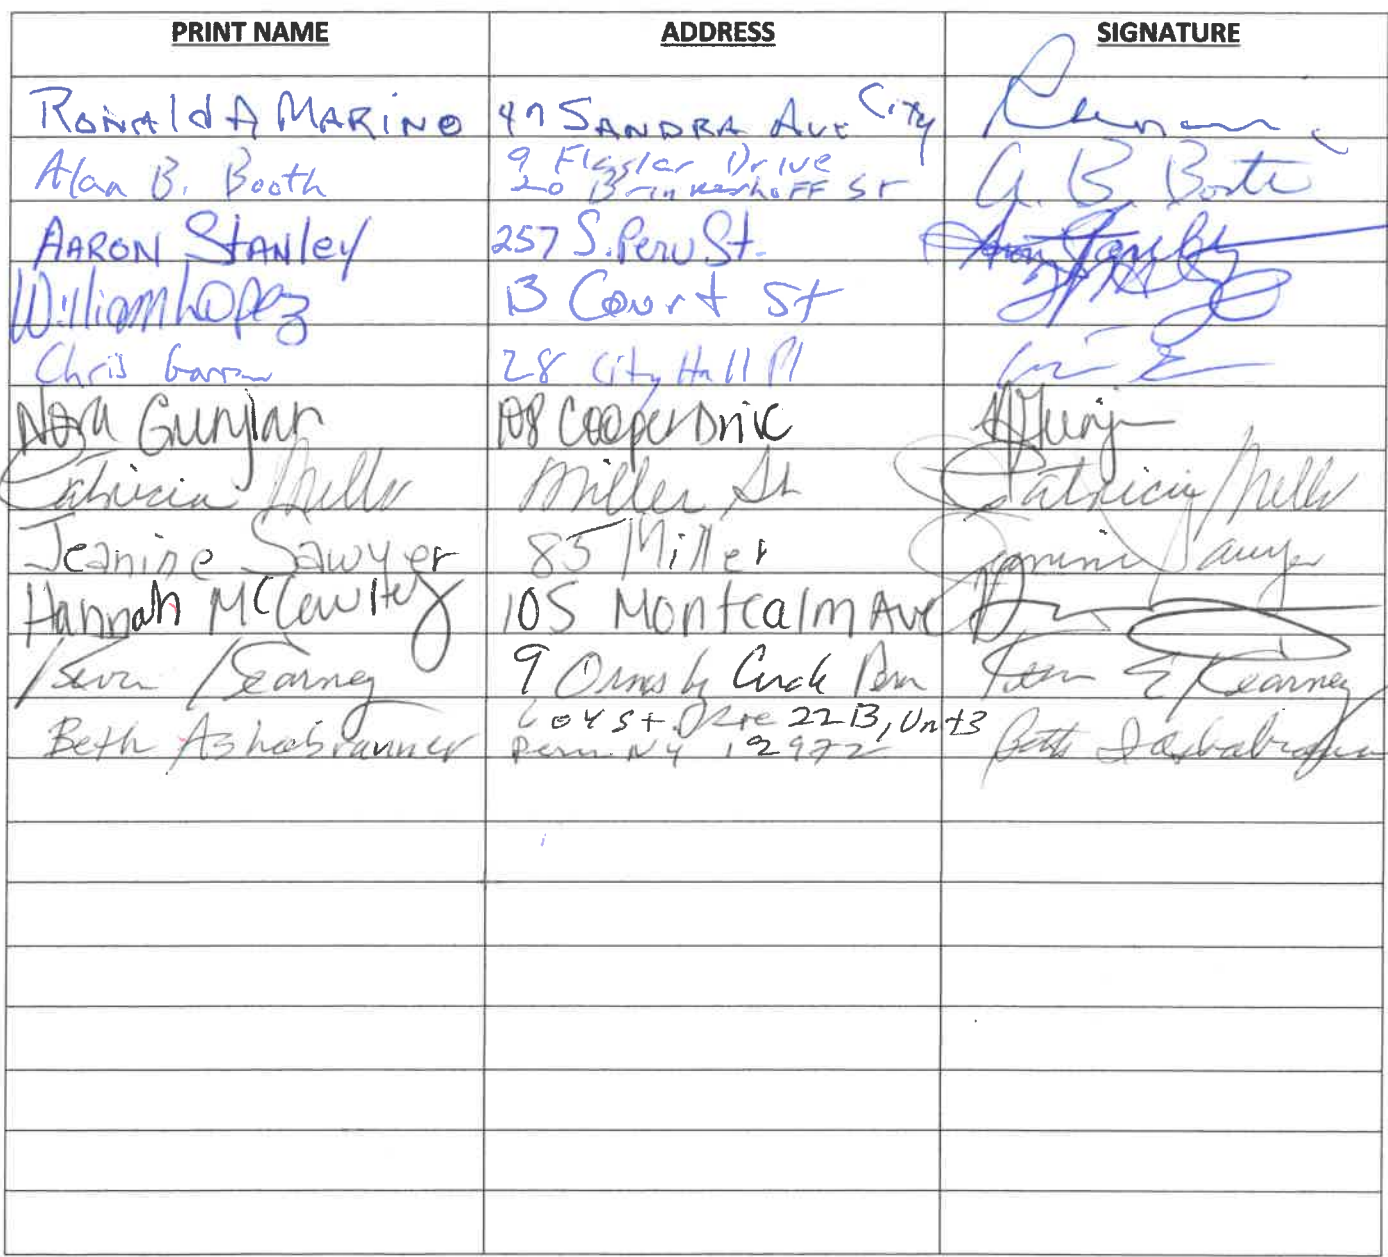 PRINT NAME ADDRESS SIGNATURE
Ronald A Marino 47 Sandra Ave City
Alan B. Booth 9 Flagler Drive A. B. Booth
20 Brinkerhoff St
Aaron Stanley 257 S. Peru St.
William Lopez 13 Court St
Chris 28 City Hall Pl
Nora Gunjian 108 Cooper Drive
Patricia Mills Miller St Patricia Mills
Jeanine Sawyer 85 Miller Jeanine Sawyer
Hannah 105 Montcalm Ave
Kevin Kearney 9 Ormsby Circle Peru Kevin E Kearney
Beth Ashabranner St. 22B, Unit 3 Beth
Peru NY 12972